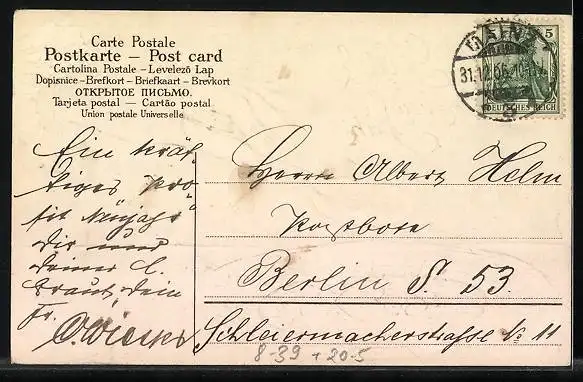 Carte Postale
Postkarte — Post card
Cartolina Postale - Levelező Lap
Dopisnice - Brefkort - Briefkaart - Brevkort
ОТКРЫТОЕ ПИСЬМО.
Tarjeta postal — Cartão postal
Union postale Universelle
MAINZ
31.12.06.
5
DEUTSCHES REICH
Ein kräf-
tiges „Pro-
sit Neujahr“
Dir und
deiner l.
Braut, dein
Fr.
Herrn Albert Helm
Postbote
Berlin S. 53
Schleiermacherstraße No 11
8-39 + 20-5